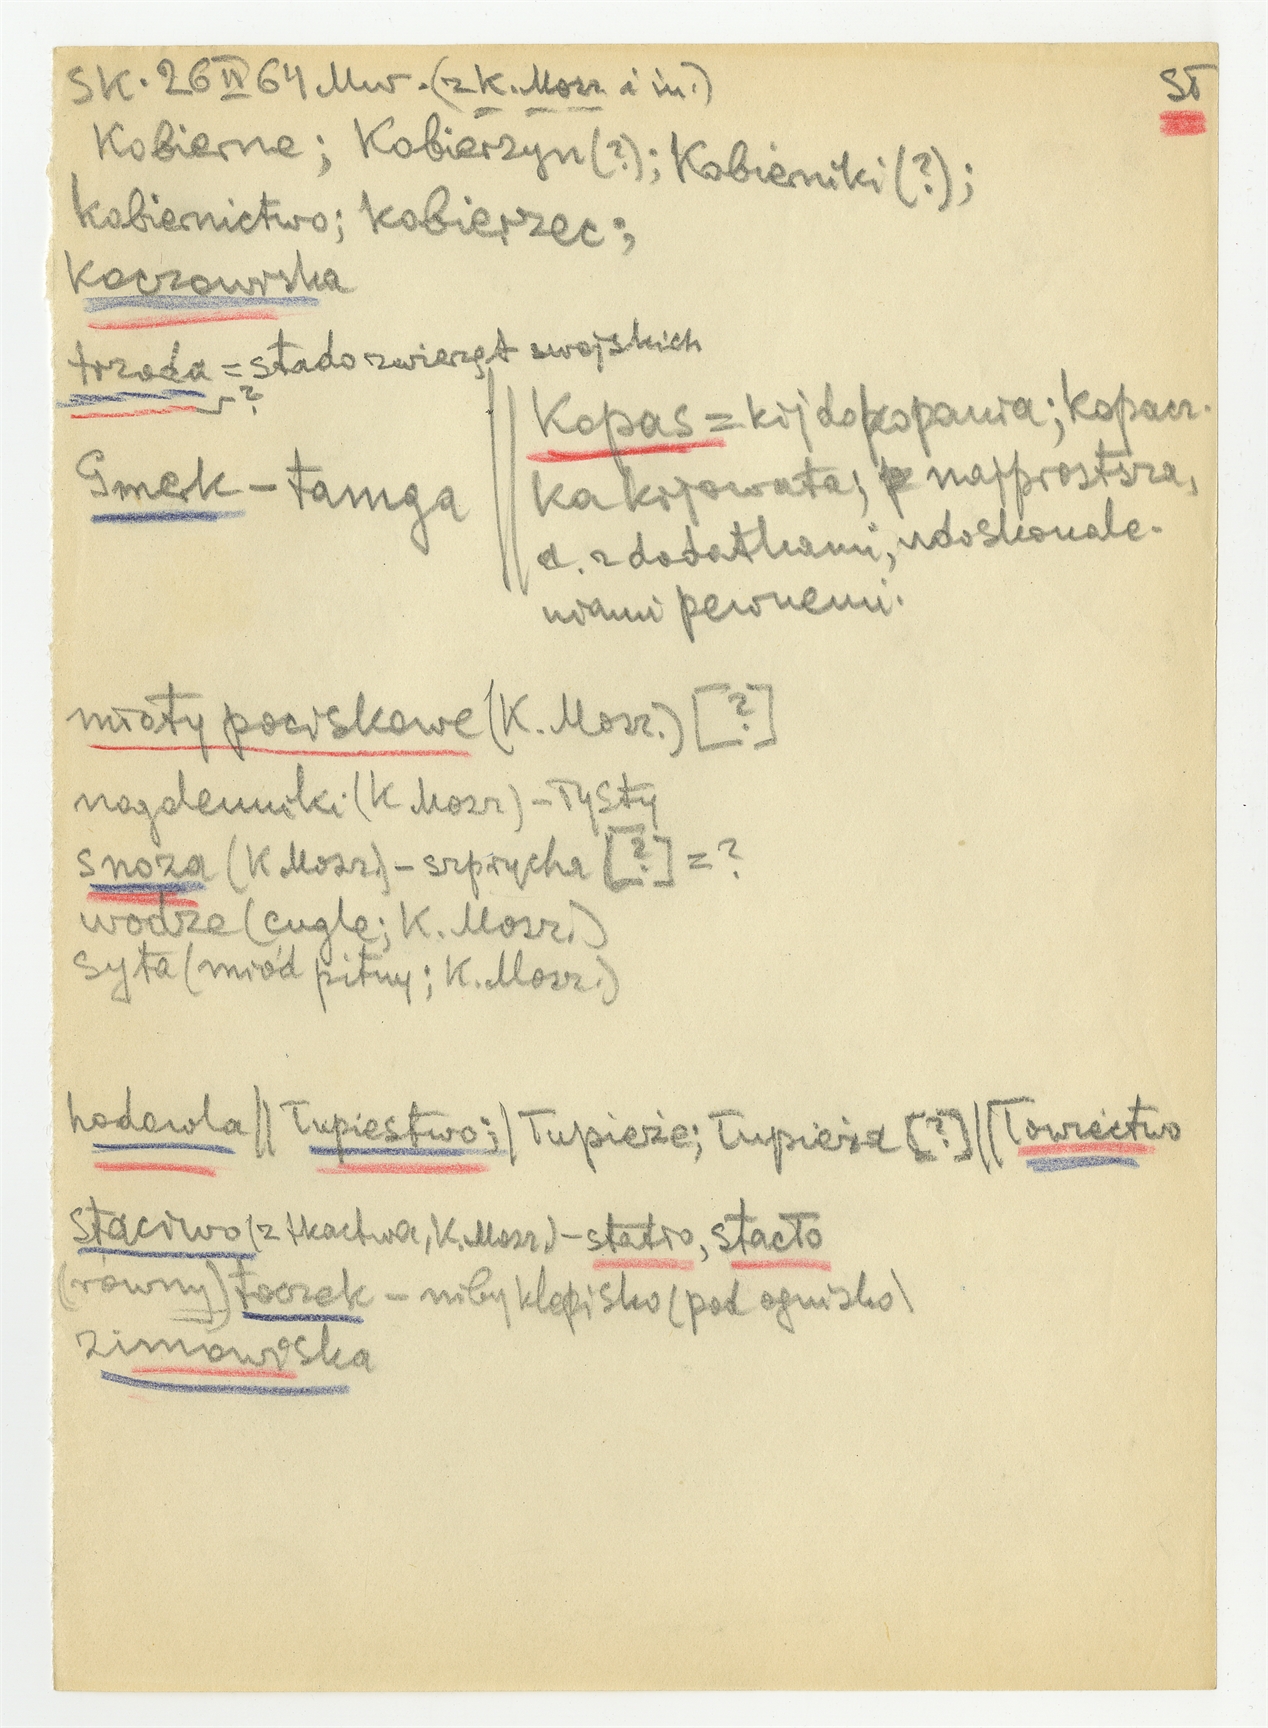 SK. 26 IV 64 Mw. (z K. Mosz. i in.) Sł
Kobierne; Kobierzyn(?); Kobierniki(?);
kobiernictwo; kobierzec;
Koczowiska
trzoda = stado zwierząt swojskich
?
Gmerk – tamga
Kopas = kij do kopania; kopacz-
ka kijowata; najprostsza,
a. z dodatkami, udoskonale-
niami pewnemi.
mioty pociskowe (K. Mosz.) [?]
nogolenniki (K Mosz) – łysty
snoza (K Mosz.) – szprycha [?] = ?
wodze (cugle; K. Mosz.)
syta (miód pitny; K. Mosz.)
hodowla || Łupiestwo; | Łupieże; Łupieża [?] || Łowiectwo
staciwo (z tkactwa, K. Mosz.) – statio, stacło
(równy) toczek – niby klepisko (pod ognisko)
zimowiska